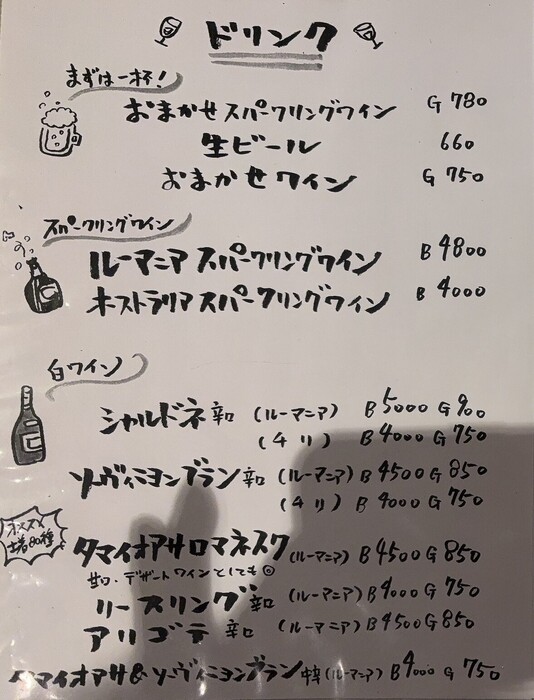 ドリンク
まずは一杯!
おまかせスパークリングワイン G 780
生ビール 660
おまかせワイン G 750
スパークリングワイン
ルーマニア スパークリングワイン B 4800
オーストラリア スパークリングワイン B 4000
白ワイン
シャルドネ 辛口 (ルーマニア) B 5000 G 900
(チリ) B 4000 G 750
ソーヴィニヨンブラン 辛口 (ルーマニア) B 4500 G 850
(チリ) B 4000 G 750
オススメ
タマイオアサロマネスク (ルーマニア) B 4500 G 850
甘口・デザートワインとしても◎
リースリング 辛口 (ルーマニア) B 4000 G 750
アリゴテ 辛口 (ルーマニア) B 4500 G 850
タマイオアサ&ソーヴィニヨンブラン (ルーマニア) B 4000 G 750